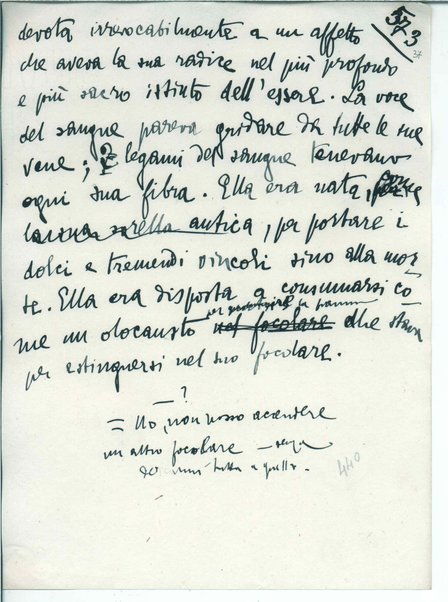 573
37
devota irrevocabilmente a un affetto
che aveva la sua radice nel più profondo
e più sacro istinto dell'essere. La voce
del sangue pareva gridare da tutte le sue
vene; legami del sangue tenevano
ogni sua fibra. Ella era nata, come
la sua sorella antica, per portare i
dolci e tremendi vincoli sino alla mor-
te. Ella era disposta a consumarsi co
per la fiamma
me un olocausto nel focolare che stava
per estinguersi nel suo focolare.
— ?
= No, non posso accendere
un altro focolare — senza
tutta a quello.
440